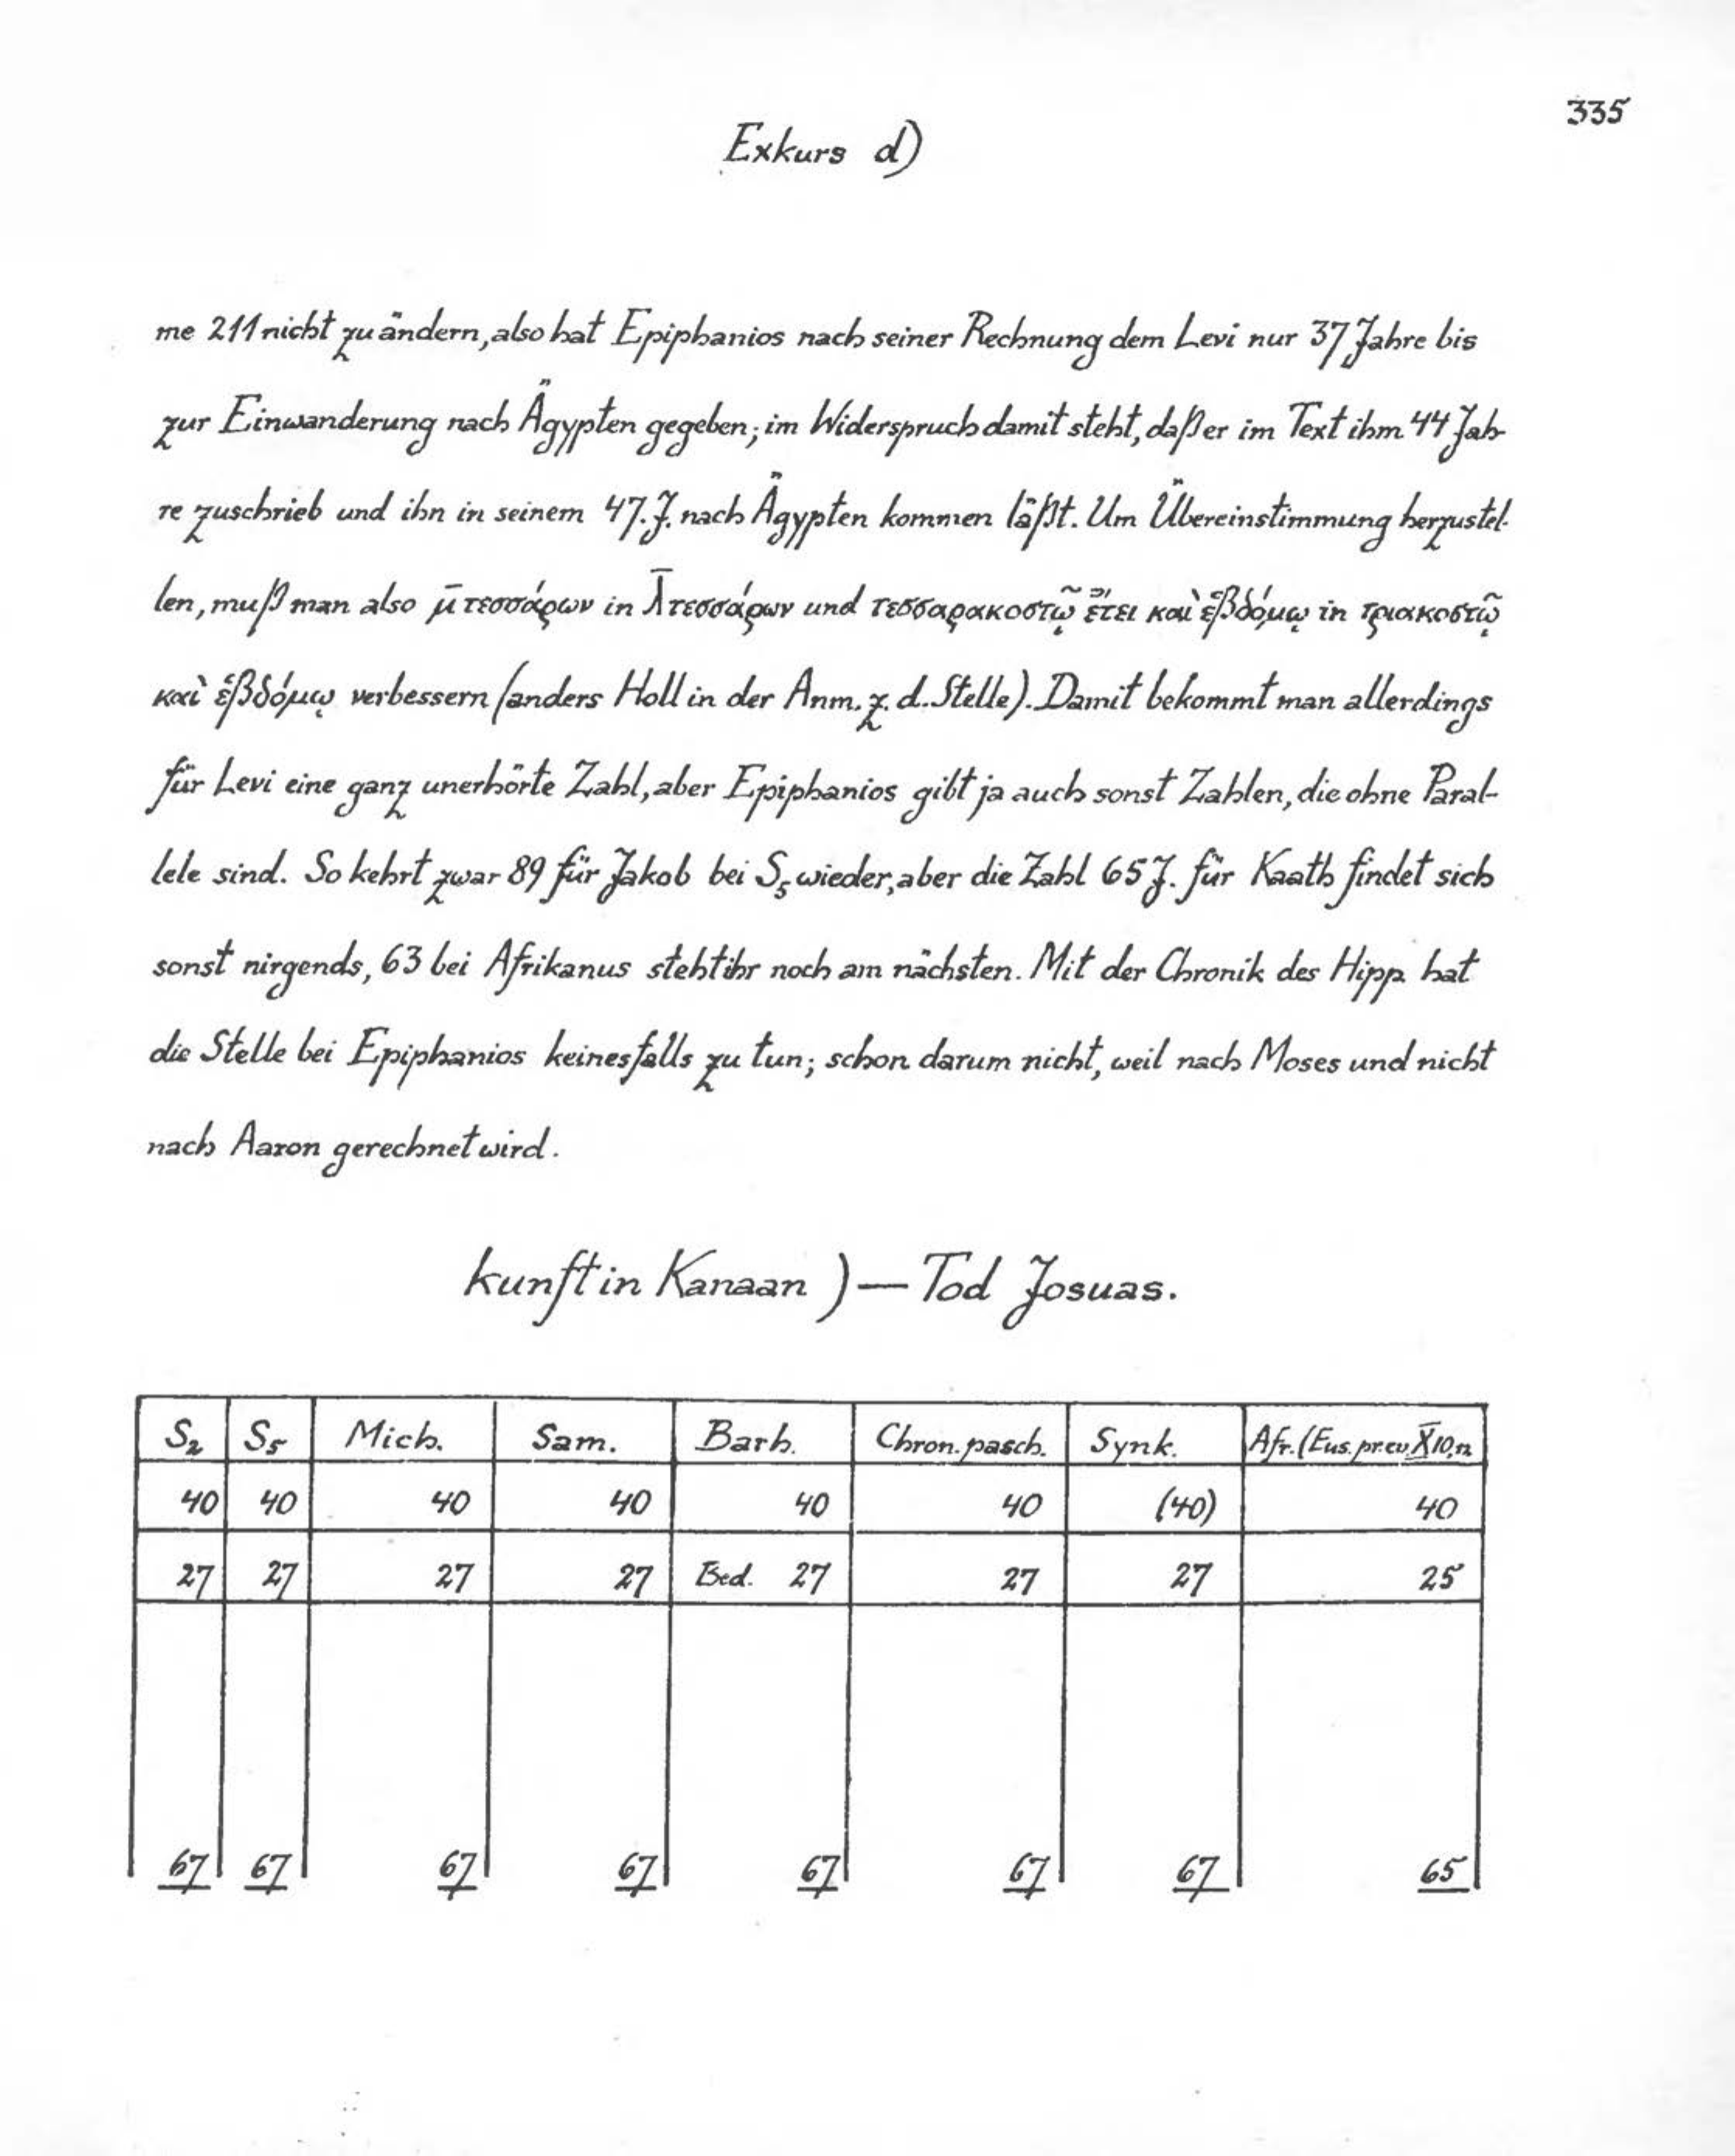 335
Exkurs d)
me 211 nicht zu ändern, also hat Epiphanios nach seiner Rechnung dem Levi nur 37 Jahre bis
zur Einwanderung nach Ägypten gegeben; im Widerspruch damit steht, daß er im Text ihm 44 Jah-
re zuschrieb und ihn in seinem 47. J. nach Ägypten kommen läßt. Um Übereinstimmung herzustel-
len, muß man also μ̄ τεσσάρων in λ̄ τεσσάρων und τεσσαρακοστῷ ἔτει καὶ ἑβδόμῳ in τριακοστῷ
καὶ ἑβδόμῳ verbessern (anders Holl in der Anm. z. d. Stelle). Damit bekommt man allerdings
für Levi eine ganz unerhörte Zahl, aber Epiphanios gibt ja auch sonst Zahlen, die ohne Paral-
lele sind. So kehrt zwar 89 für Jakob bei S₅ wieder, aber die Zahl 65 J. für Kaath findet sich
sonst nirgends, 63 bei Afrikanus steht ihr noch am nächsten. Mit der Chronik des Hipp. hat
die Stelle bei Epiphanios keinesfalls zu tun; schon darum nicht, weil nach Moses und nicht
nach Aaron gerechnet wird.
kunft in Kanaan) — Tod Josuas.
S₂ S₅ Mich. Sam. Barb. Chron. pasch. Synk. Afr. (Eus. pr. ev. X 10,12
40 40 40 40 40 40 (40) 40
27 27 27 27 Bed. 27 27 27 25
67 67 67 67 67 67 67 65